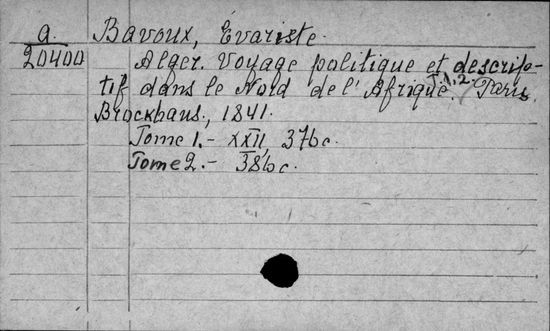 a. Bavoux, Évariste.
20400 Alger. Voyage politique et descrip-
tif dans le Nord de l'Afrique. T.1.2. Paris.
Brockhaus., 1841.
Tome 1.- XXII, 376 c.
Tome 2.- 386 c.